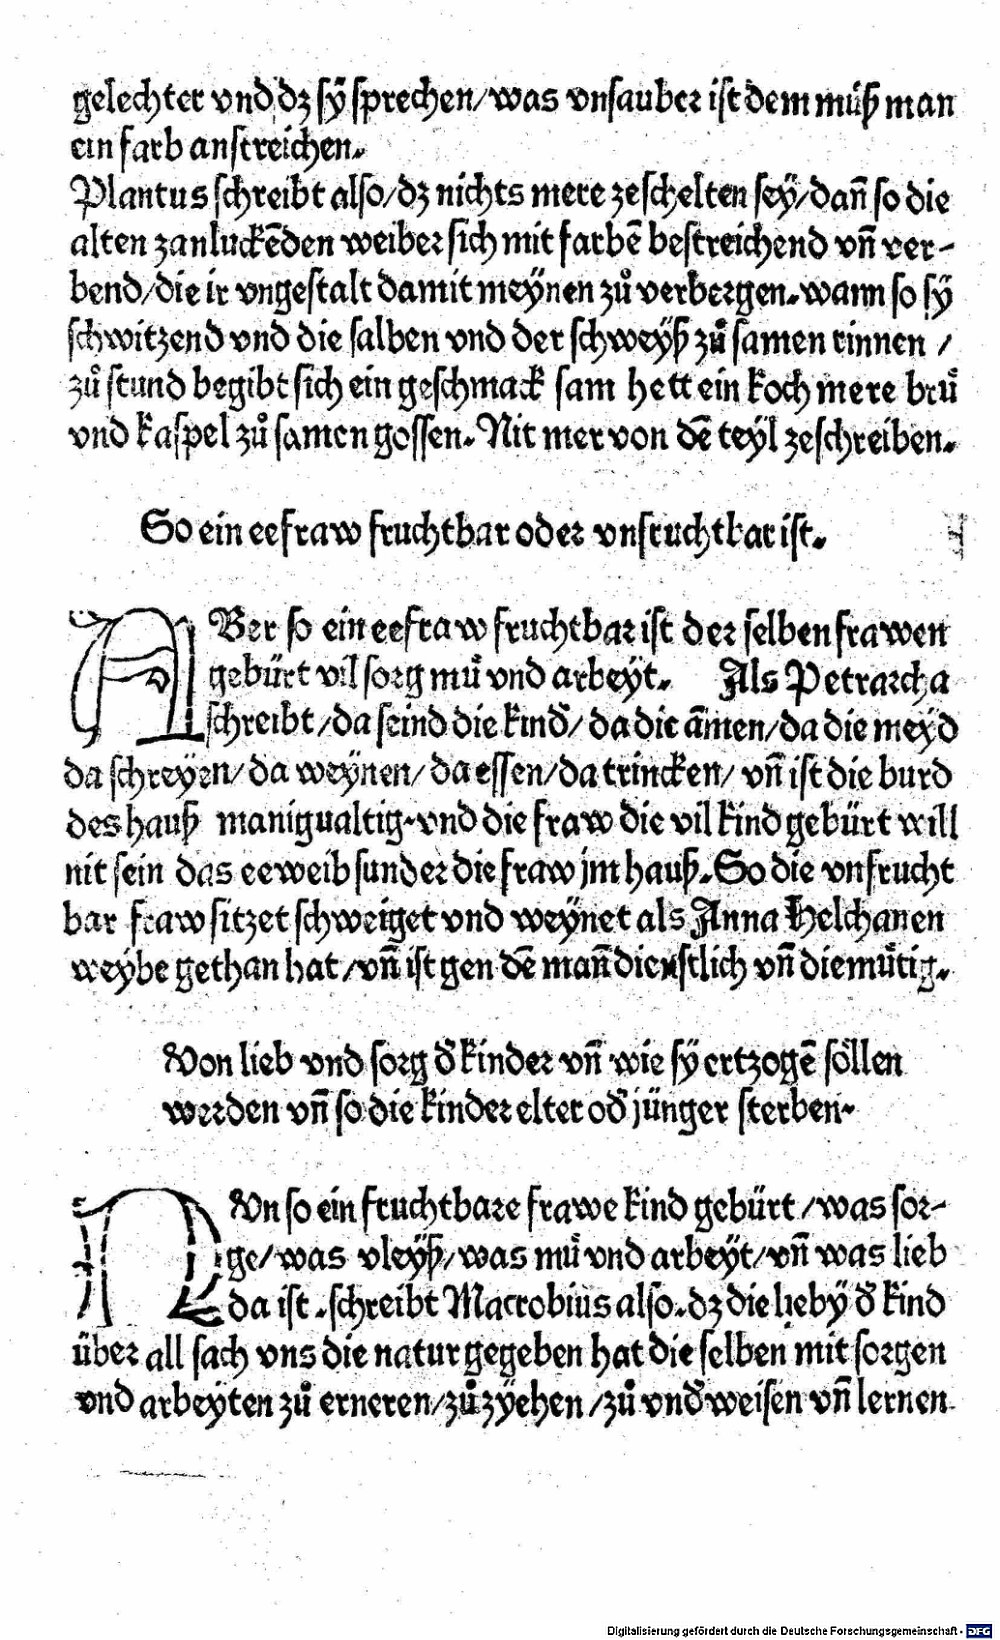 gelechter vnd dz sÿ sprechen/was vnsauber ist dem müß man
ein farb anstreichen.
Plantus schreibt also/dz nichts mere zeschelten seÿ/dan̄ so die
alten zanluckēden weiber sich mit farbē bestreichend vn̄ ver-
bend/die ir vngestalt damit meÿnen zů verbergen.wann so sÿ
schwitzend vnd die salben vnd der schweÿß zů samen rinnen /
zů stund begibt sich ein geschmack sam hett ein koch mere brů
vnd kaspel zů samen gossen. Nit mer von dē teÿl zeschreiben.
So ein eefraw fruchtbar oder vnfruchtbar ist.
ABer so ein eefraw fruchtbar ist der selben frawen
gebürt vil sorg mů vnd arbeÿt. Als Petrarcha
schreibt/da seind die kind̄/da die am̄en/da die meÿd
da schreÿen/da weÿnen/da essen/da trincken/ vn̄ ist die burd
des hauß manigualtig.vnd die fraw die vil kind gebürt will
nit sein das eeweib sunder die fraw jm hauß. So die vnfrucht
bar fraw sitzet schweiget vnd weÿnet als Anna Helchanen
weybe gethan hat/vn̄ ist gen dē man̄ dienstlich vn̄ diemůtig.
Von lieb vnd sorg d̄ kinder vn̄ wie sÿ ertzogē söllen
werden vn̄ so die kinder elter od̄ jünger sterben.
NVn so ein fruchtbare frawe kind gebürt/was sor-
ge/was vleÿß/was mů vnd arbeÿt/vn̄ was lieb
da ist.schreibt Macrobius also.dz die liebÿ d̄ kind
über all sach vns die natur gegeben hat die selben mit sorgen
vnd arbeyten zů erneren/zů zÿehen/zů vnd̄weisen vn̄ lernen
Digitalisierung gefördert durch die Deutsche Forschungsgemeinschaft - DFG